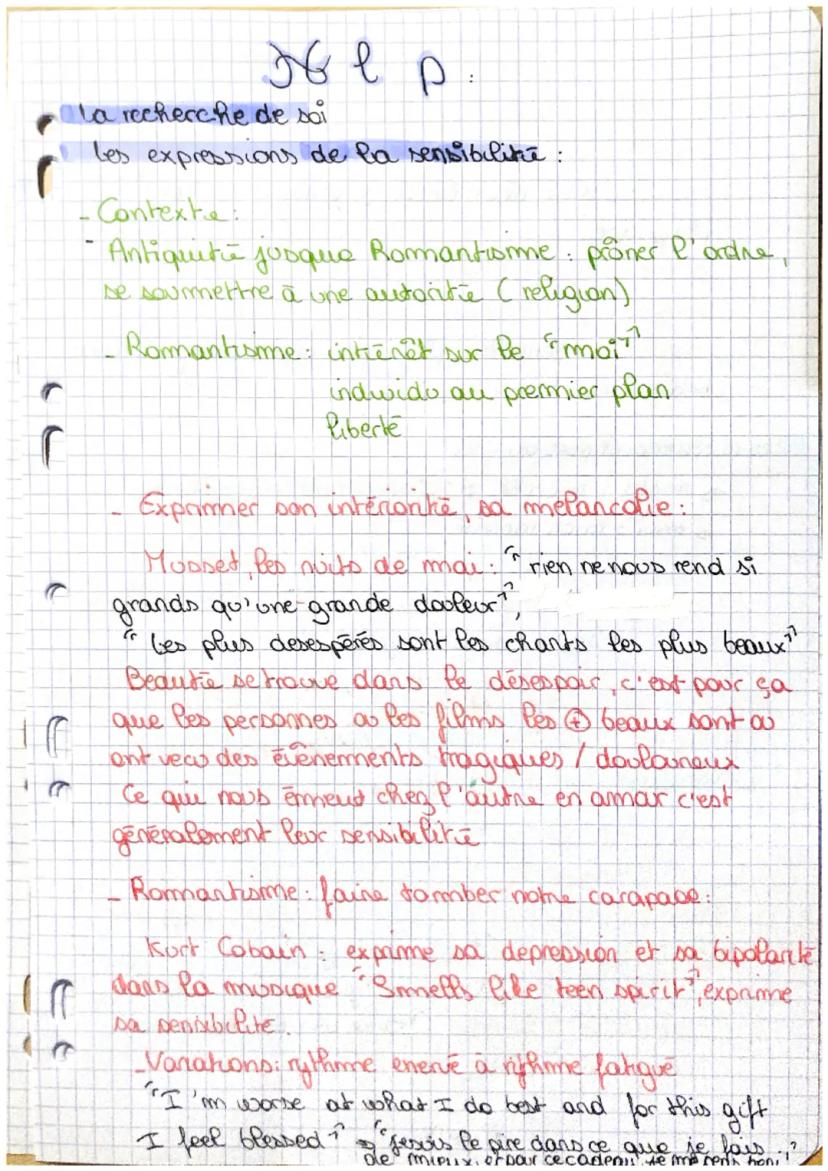 Hlp :
La recherche de soi
Les expressions de la sensibilité :
- Contexte :
- Antiquité jusque Romantisme : prôner l'ordre,
se soumettre à une autorité (religion)
- Romantisme : intérêt sur le "moi"
individu au premier plan
liberté
- Exprimer son intériorité, sa mélancolie :
Musset, les nuits de mai : "rien ne nous rend si
grands qu'une grande douleur",
"Les plus desespérés sont les chants les plus beaux"
Beauté se trouve dans le désespoir, c'est pour ça
que les personnes ou les films les ⊕ beaux sont ou
ont vecu des évênements tragiques / douloureux
Ce qui nous émeut chez l'autre en amour c'est
généralement leur sensibilité
- Romantisme : faire tomber notre carapace :
Kurt Cobain : exprime sa depression et sa bipolarité
dans la musique "Smells like teen spirit", exprime
sa sensibilité.
- Variations : rythme enervé à rythme fatigué
"I'm worse at what I do best and for this gift
I feel blessed" → "je suis le pire dans ce que je fais
de mieux, et pour ce cadeau, je me sens béni"